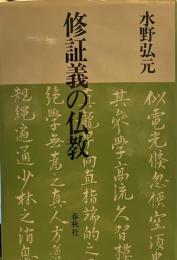 水野弘元
修証義の仏教
春秋社
似電光倏忽便空須臾
其參學高流久習
直指端的
絶學無為之真人方
繩遍通少林之消息